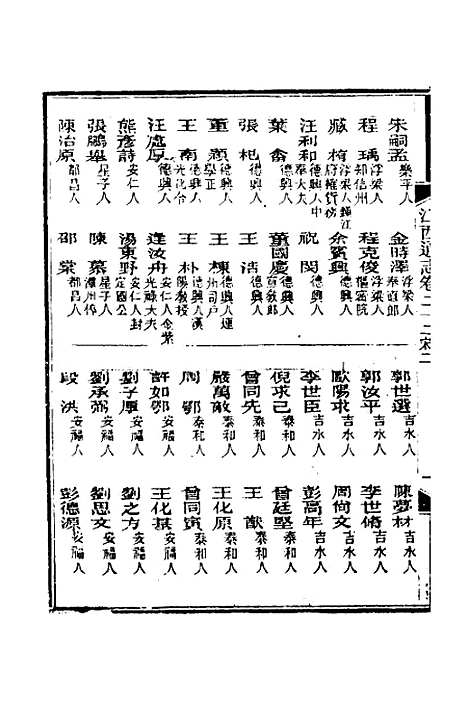 江西通志卷二十二宋二
朱嗣孟樂平人
金時澤浮梁人奉直郎
郭世選吉水人
陳夢材吉水人
程瑀浮梁人知信州
程克俊浮梁人樞密院
郭汝平吉水人
李世脩吉水人
臧梓浮梁人鎮江府榷貨務
余賓興浮梁人
歐陽求吉水人
周尚文吉水人
汪利和德興人中奉大夫
祝閔德興人
李世臣吉水人
彭高年吉水人
葉畬德興人
董國慶德興人宣教郎
倪求己泰和人
曾廷堅泰和人
張杞德興人
王浩德興人
曾同先泰和人
王猷泰和人
董穎德興人學正
王棟德興人連州司戶
嚴萬敵泰和人
王化原泰和人
王南德興人光化令
王朴德興人漢陽教授
周鄂泰和人
曾同寅泰和人
汪處厚德興人
逄汝舟安仁人金紫光祿大夫
許如鄂安福人
王化基安福人
熊彥詩安仁人
湯東野安仁人封定國公
劉子厚安福人
劉之方安福人
張鵬舉星子人
陳慕星子人漳州倅
劉承弼安福人
劉思文安福人
陳治原都昌人
邵棠都昌人
段洪安福人
彭德源安福人